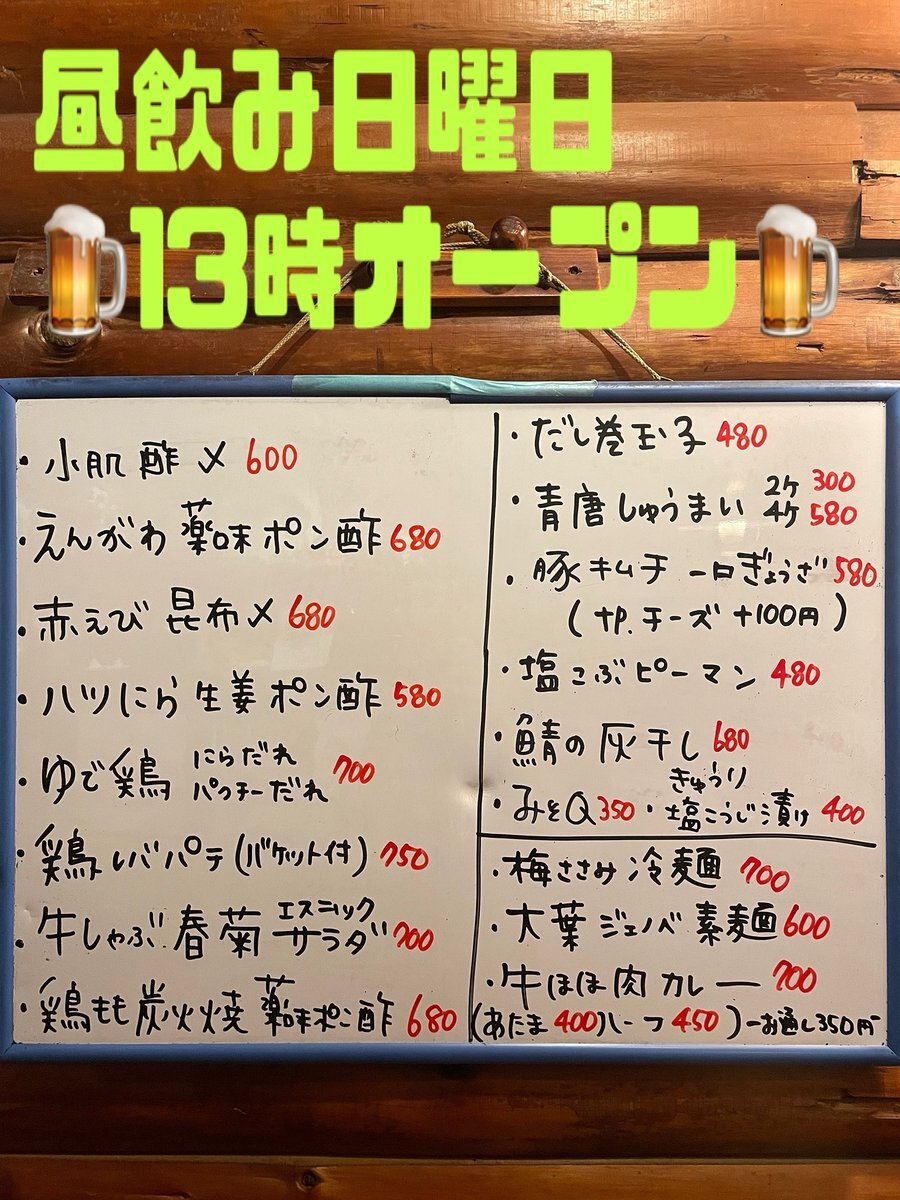 昼飲み日曜日
13時オープン
・小肌酢〆 600
・えんがわ 薬味ポン酢 680
・赤えび 昆布〆 680
・ハツにら 生姜ポン酢 580
・ゆで鶏 にらだれ パクチーだれ 700
・鶏レバパテ(バケット付) 750
・牛しゃぶ 春菊 エスニックサラダ 700
・鶏もも炭火焼 薬味ポン酢 680
・だし巻玉子 480
・青唐しゅうまい 2ケ 300
4ケ 580
・豚キムチ 一口ぎょうざ 580
(tp.チーズ +100円)
・塩こぶピーマン 480
・鯖の灰干し 680
・みそQ 350 ・きゅうり塩こうじ漬け 400
・梅ささみ 冷麺 700
・大葉ジェノベ素麺 600
・牛ほほ肉カレー 700
(あたま400 ハーフ450) ーお通し350円ー